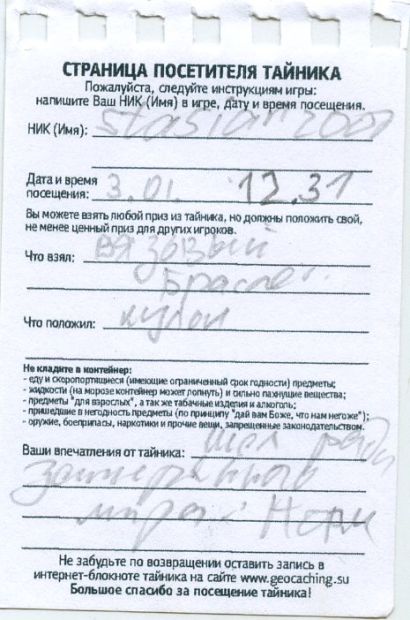 СТРАНИЦА ПОСЕТИТЕЛЯ ТАЙНИКА
Пожалуйста, следуйте инструкциям игры:
напишите Ваш НИК (Имя) в игре, дату и время посещения.
НИК (Имя):
Дата и время 3.01. 12.31
посещения:
Вы можете взять любой приз из тайника, но должны положить свой,
не менее ценный приз для других игроков.
Что взял:
Что положил: кулон
Не кладите в контейнер:
- еду и скоропортящиеся (имеющие ограниченный срок годности) предметы;
- жидкости (на морозе контейнер может лопнуть) и сильно пахнущие вещества;
- предметы "для взрослых", а так же табачные изделия и алкоголь;
- пришедшие в негодность предметы (по принципу "дай вам Боже, что нам негоже");
- оружие, боеприпасы, наркотики и прочие вещи, запрещенные законодательством.
Ваши впечатления от тайника: шел
Не забудьте по возвращении оставить запись в
интернет-блокноте тайника на сайте www.geocaching.su
Большое спасибо за посещение тайника!